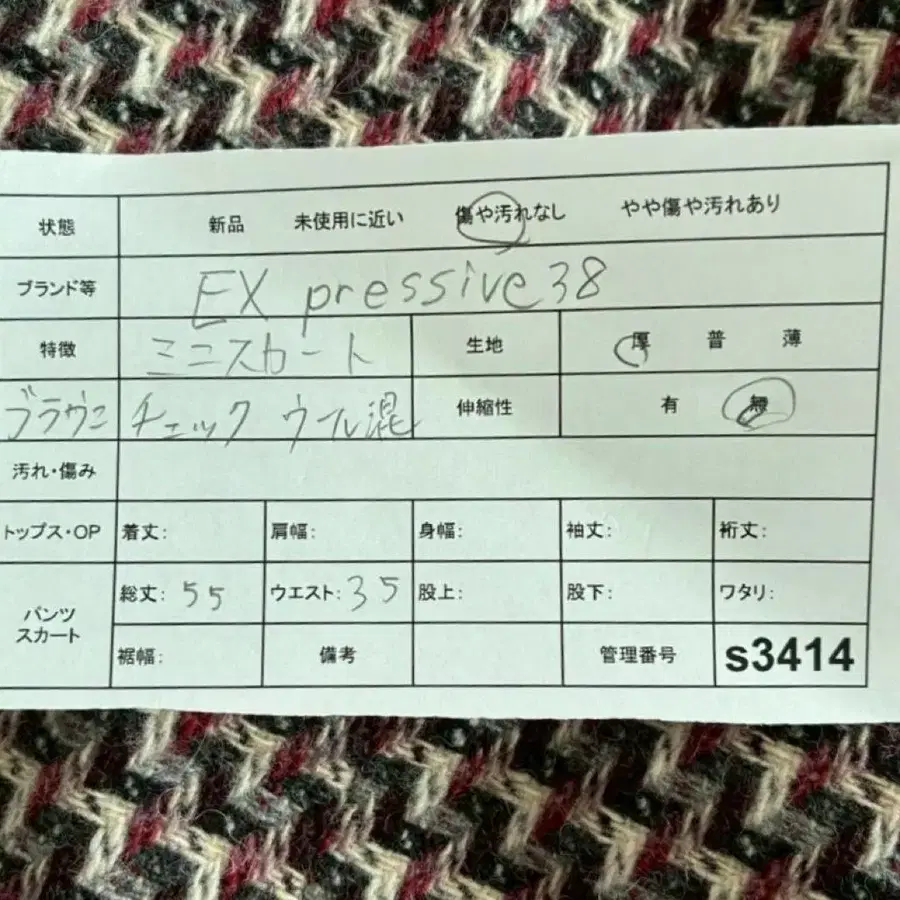 状態 新品 未使用に近い 傷や汚れなし やや傷や汚れあり
ブランド等 EXpressive 38
特徴 ミニスカート 生地 厚 普 薄
ブラウン チェック ウール混 伸縮性 有 無
汚れ・傷み
トップス・OP 着丈: 肩幅: 身幅: 袖丈: 裄丈:
パンツ スカート 総丈: 55 ウエスト: 35 股上: 股下: ワタリ:
裾幅: 備考 管理番号 s3414